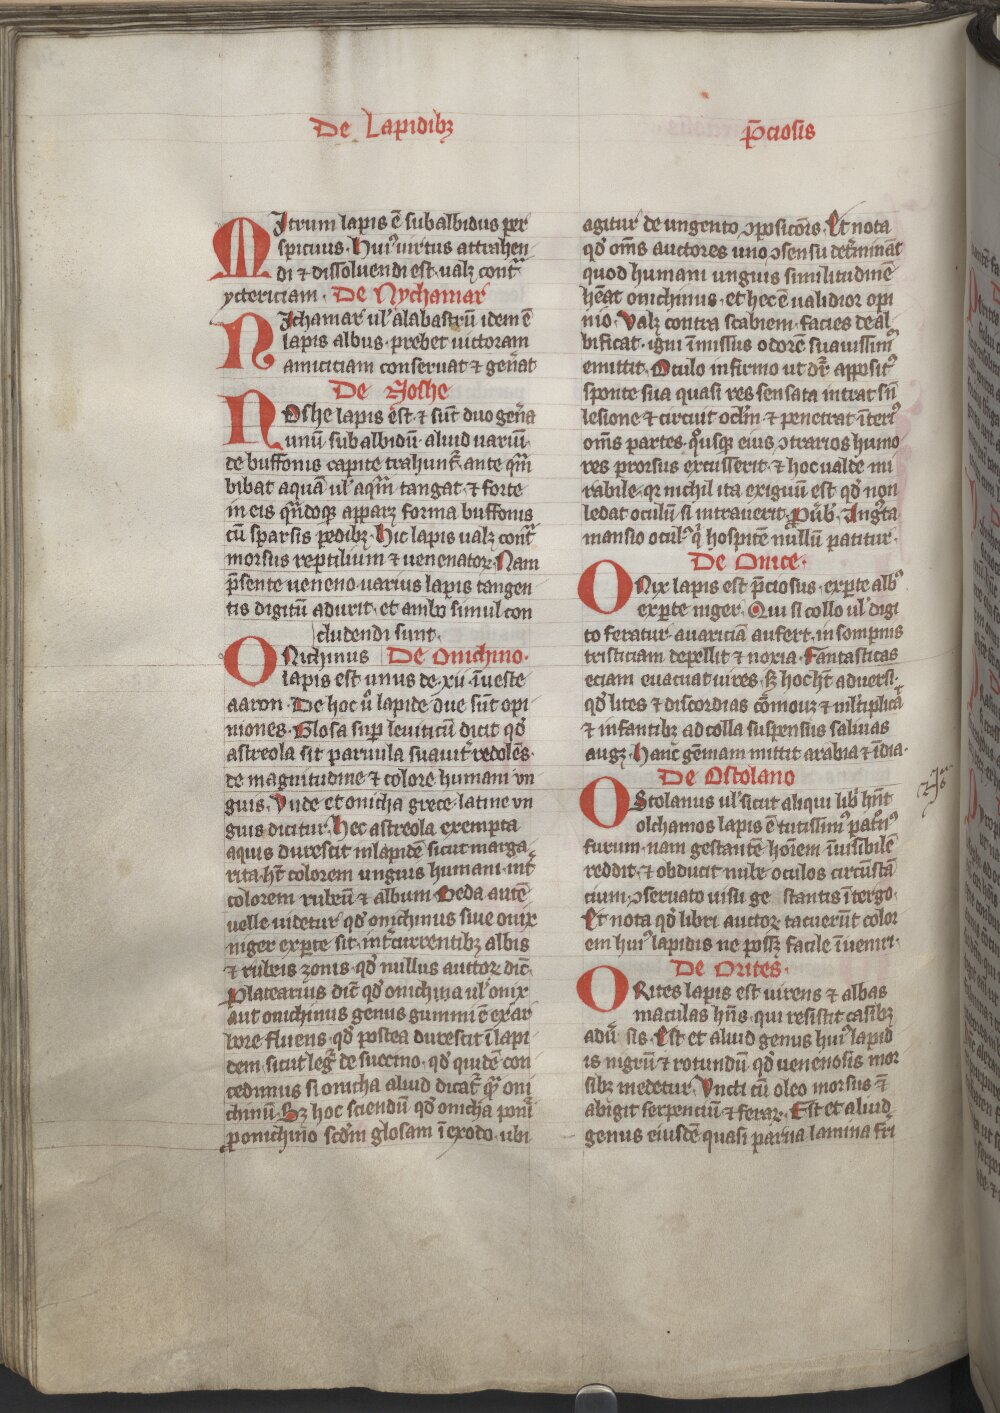 De Lapidibꝫ p̄ciosis
MItrum lapis ē subalbidus per
spicuus. Huiꝰ uirtus attrahen
di ⁊ dissoluendi est. ualꝫ contᷓ
yctericiam. De Nychamar
NIchamar ul' alabastrū idem ē
lapis albus. prebet uictoriam
amiciciam conseruat ⁊ gen̄at
De Noshe
NOshe lapis est. ⁊ sūt duo gen̄a
unū subalbidū. aliud uariū.
de buffonis capite trahunt̄. ante qᷓm
bibat aquā ul' aqᷓm tangat. ⁊ forte
in eis qn̄doqꝫ apparꝫ forma buffonis
cū sparsis pedibꝫ. Hic lapis ualꝫ contᷓ
morsus reptilium ⁊ uenenatoꝝ. Nam
p̄sente ueneno uarius lapis tangen
tis digitū adurit. et ambo simul con
cludendi sunt.
ONichinus De Onichino.
lapis est unus de xii. ī ueste
aaron. De hoc ū lapide due sūt opi
niones. Glosa suꝑ leuiticū dicit qd̓
astreola sit paruula suauit̄ redolēs.
de magnitudine ⁊ colore humani un
guis. Vnde et onicha grece. latine un
guis dicitur. Hec astreola exempta
aquis durescit in lapidē sicut marga
rita. hꝫ colorem unguis humani. int̄
colorem rubeū ⁊ album. Beda autē
uelle uidetur qd̓ onichinus siue onix
niger ex ꝑte sit. int̄currentibꝫ albis
⁊ rubeis zonis. qd̓ nullus auctoꝝ dic̄.
Platearius dic̄ qd̓ onichina ul' onix
aut onichinus genus gummi ē ex ar
bore fluens. qd̓ postea durescit ī lapi
dem. sicut leg̓ de succino. qd̓ quidē con
cedimus si onicha aliud dicat̄ qᷓ oni
chinū. Sꝫ hoc sciendū qd̓ onicha ponit̄
ꝑ onichino scdm̄ glosam ī exodo. ubi
agitur de ungento ꝯposicōis. Et nota
qd̓ om̄s auctores uno ꝯsensu det̄mināt
quod humani unguis similitudinē
hēat onichinus. et hec ē ualidior opi
nio. Valꝫ contra scabiem. facies deal
bificat. igni īmissus odorē suauissimū
emittit. Oculo infirmo ut dr̄ appositꝰ
sponte sua quasi res sensata intrat sn̄
lesione ⁊ circuit oclm̄ ⁊ penetrat īteriꝰ
om̄s partes. qͦusqꝫ eius ꝯtrarios humo
res prorsus excusserit. ⁊ hoc ualde mi
rabile. qr nichil ita exiguū est qd̓ non
ledat oculū si intrauerit. ꝓūb. Angᷓta
mansio oculꝰ qͥ hospitē nullū patitur.
De Onice.
ONix lapis est p̄ciosus. ex ꝑte albꝰ
ex ꝑte niger. Qui si collo ul' digi
to feratur. auariciā aufert. in sompnis
tristiciam depellit ⁊ noxia. Fantasticas
eciam euacuat uires. sꝫ hoc hꝫ aduersi.
qd̓ lites ⁊ discordias cōmouꝫ ⁊ ml'tiplicat̄
⁊ infantibꝫ ad colla suspensus saliuas
augꝫ. Hanc gēmam mittit arabia ⁊ īdia.
De Ostolano
OStolanus ul' sicut aliqui lib̓ hn̄t
olchamos lapis ē tutissimꝰ pat̓nꝰ
furum. nam gestantē hoīem īuisibilē
reddit. ⁊ obducit nube oculos circūstā
cium. ꝯseruato uisu ge stantis ī tergo.
Et nota qd̓ libri auctoꝝ tacuerūt color
em huiꝰ lapidis ne possꝫ facile īueniri.
De Orites.
ORites lapis est uirens ⁊ albas
maculas hn̄s. qui resistit casibꝫ
adū sis. Est et aliud genus huiꝰ lapid
is nigrū ⁊ rotundū qd̓ uenenosis mor
sibꝫ medetur. Vncti cū oleo morsus
abigit serpenciū ⁊ feraꝝ. Est et aliud
genus eiusdē quasi parua lamina fri